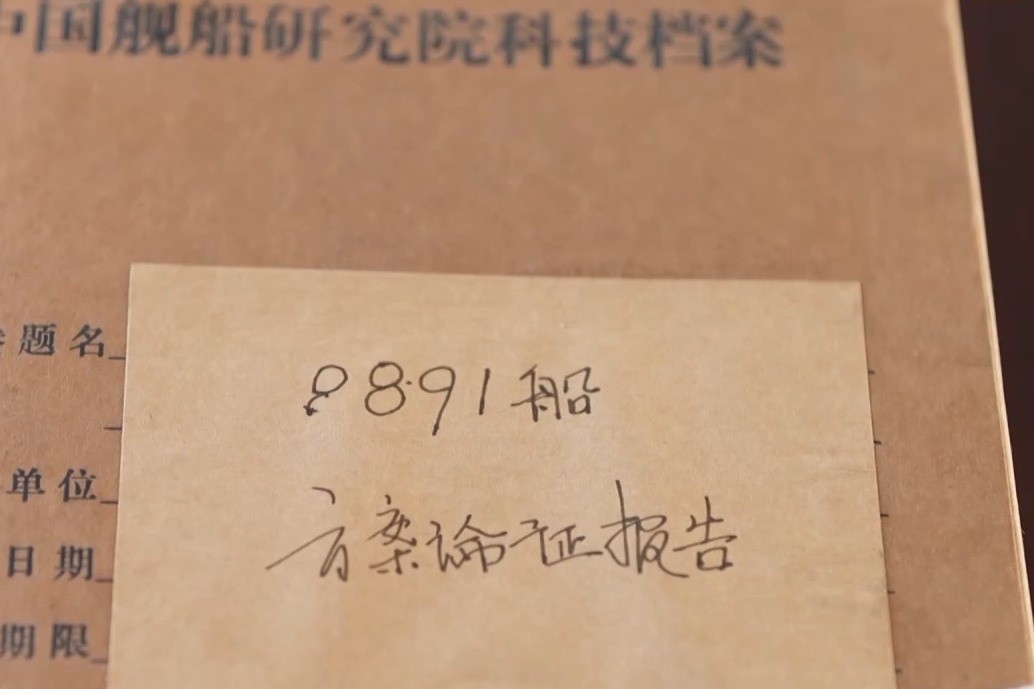 中国舰船研究院科技档案
题名
8891船
单位
方案论证报告
日期
期限